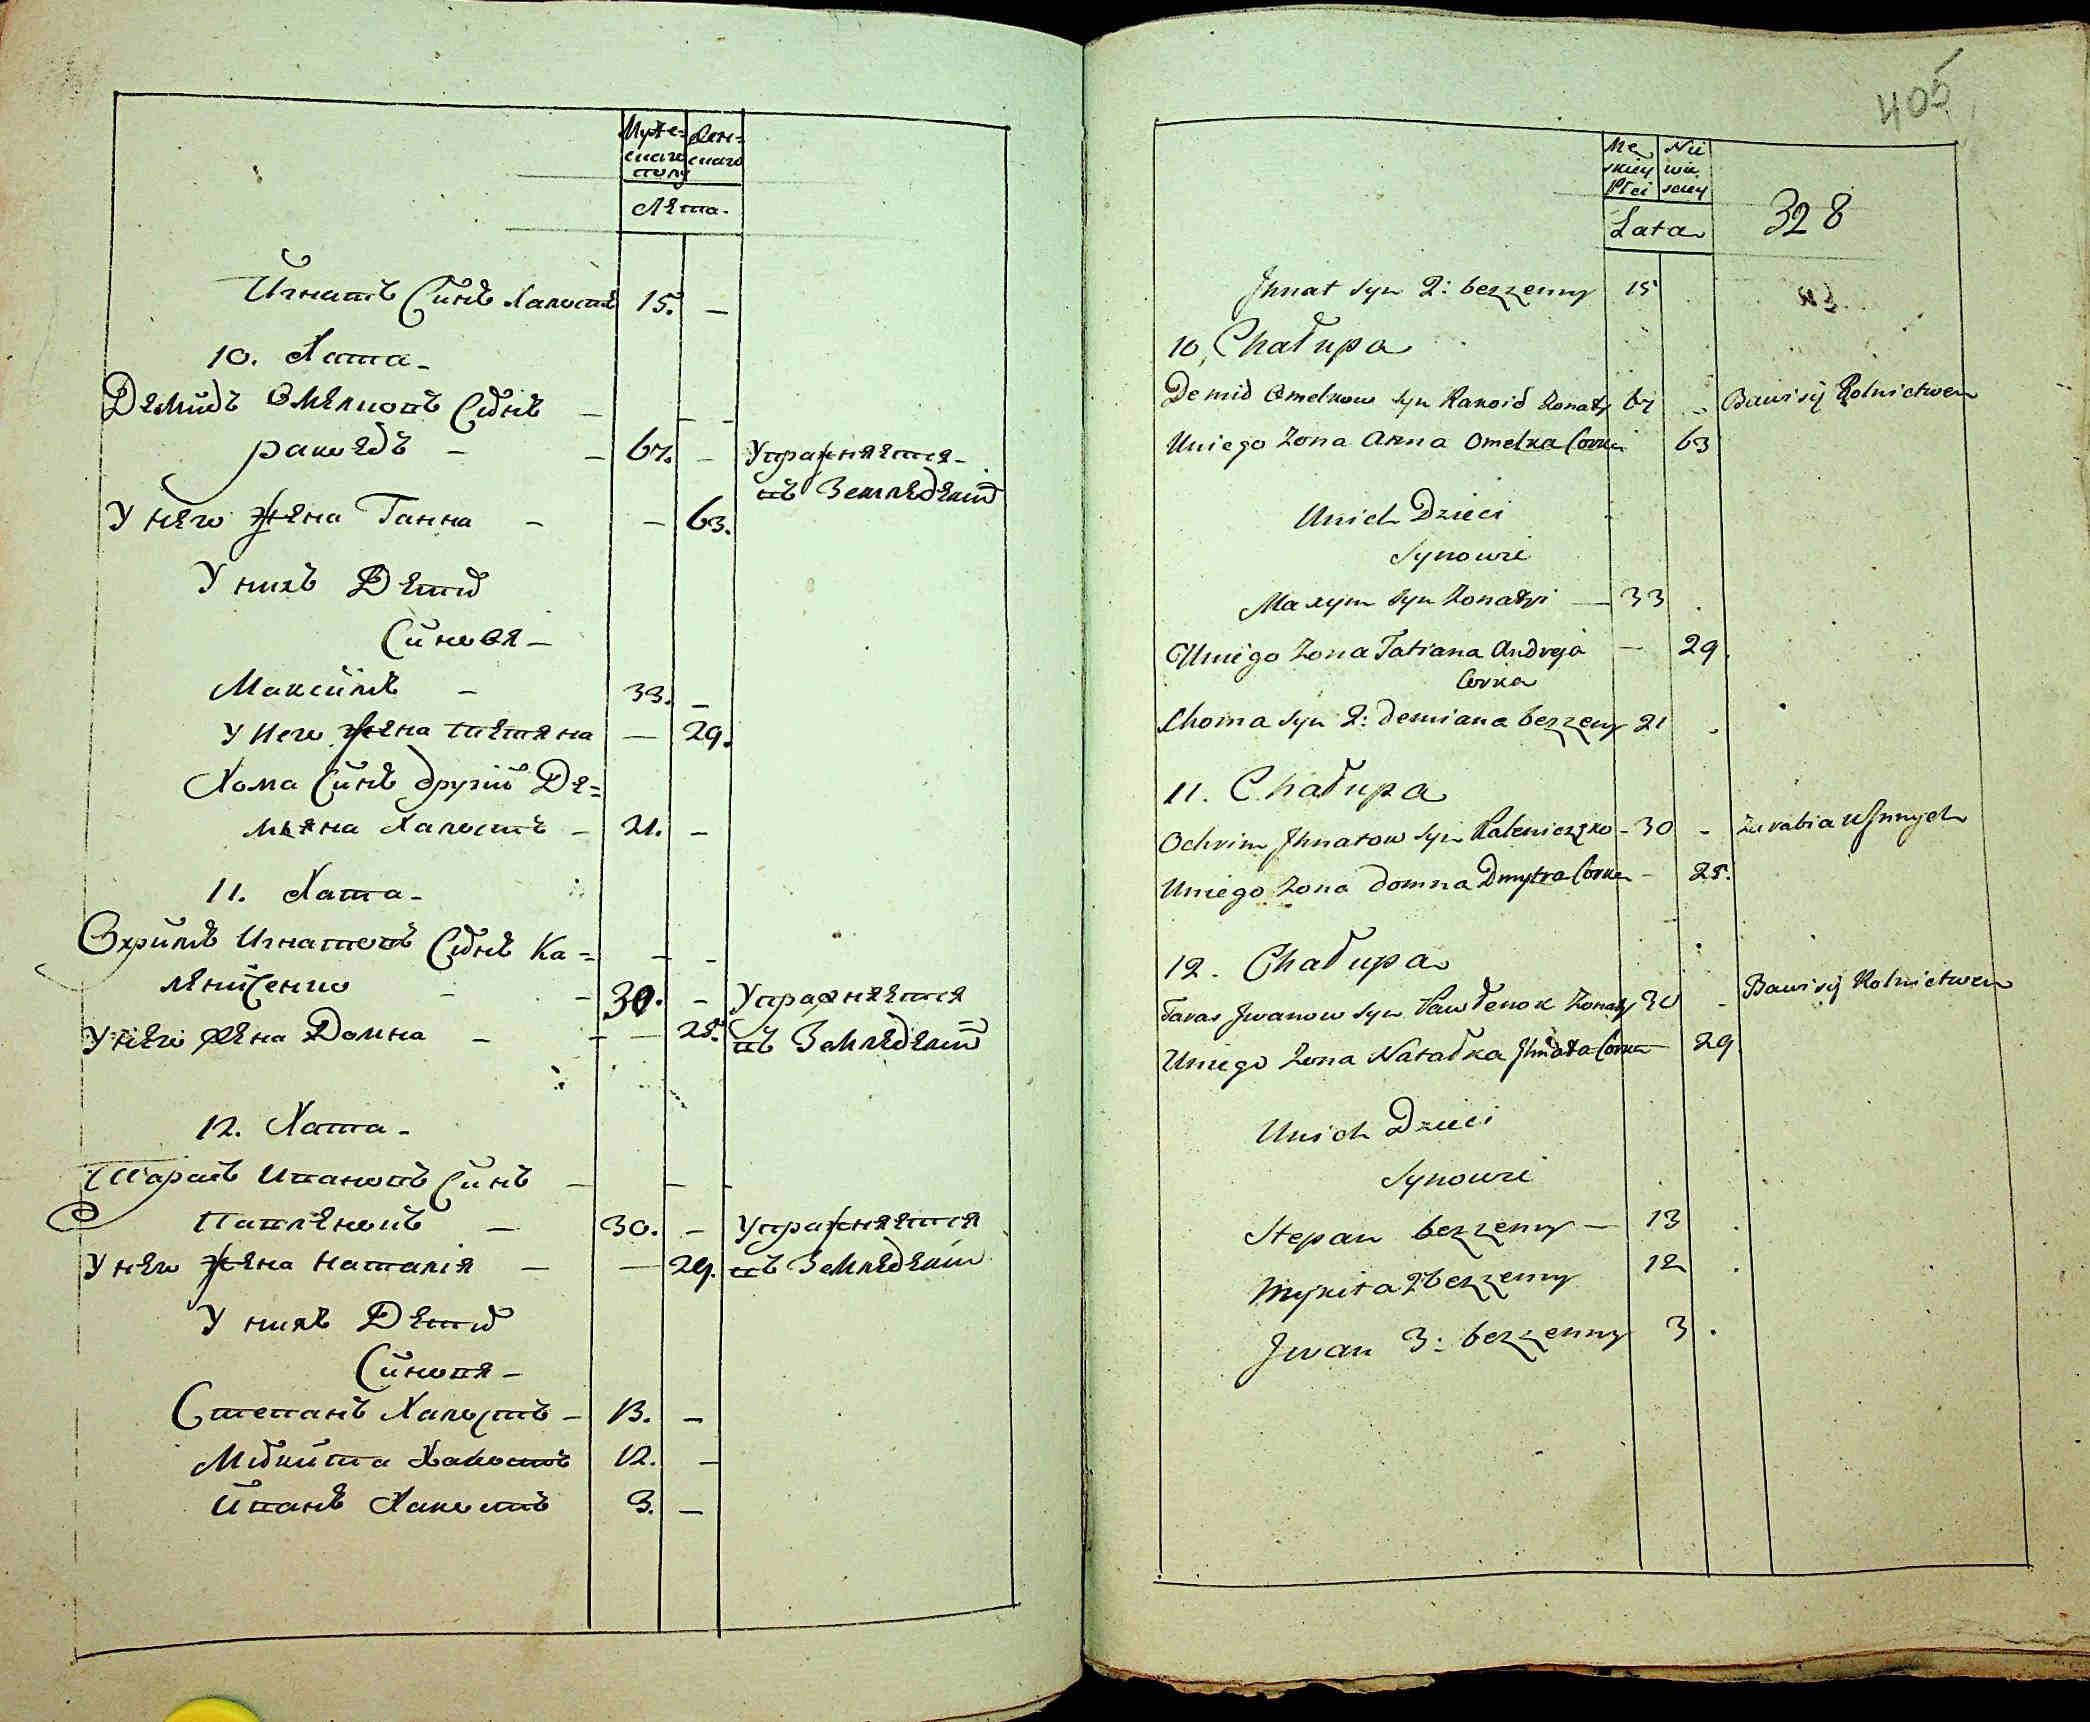 Муже= Жен=
скаго скаго
полу
Лета.
Игнатъ Синъ Халостъ 15. –
10. Хата –
Демидъ Омелковъ Синъ –
ракоедъ – – 67. – Упражняется
въ Земледелии
У него жена Ганна – – 63.
У нихъ Дети
Синовя –
Максимъ – 33. –
У Него жена татяна – 29.
Хома Синъ другий Де=
мяна Халостъ – 21. –
11. Хата –
Охримъ Игнатовъ Синъ Ка=
лениченко – – 30. – Упражняется
У него жена Домна – – – 25. въ Земледелии
12. Хата –
Тарасъ Ивановъ Синъ –
Павленокъ – 30. – Упражняется
У него жена Наталия – – 29. въ Земледелии
У нихъ Дети
Синовя –
Степанъ Халостъ – 13. –
Микита Халостъ 12. –
Иванъ Халостъ 3. –
405
Mę Nie
skiey wie
Płci sciey
Lata
328
Jhnat syn 2: bezżenny 15
10, Chałupa
Demid Omelkow syn Rakoid Zonaty 67 – Bawi się Rolnictwem
Uniego Zona Anna Omelka Corka 63
Unich Dzieci
Synowie
Maxym syn Zonaty – 33
Uniego Zona Tatiana Andreja – 29
Corka
Choma syn 2: demiana bezzeny 21
11. Chałupa
Ochrim Jhnatow syn Kaleniczko – 30 – Zarabia u Jnnych
Uniego Zona domna Dmytra Corka – 25.
12. Chałupa
Taras Jwanow syn Pawłenok Zonaty 30 – Bawi się Rolnictwem
Uniego Zona Natałka Jhnata Corka 29
Unich Dzieci
Synowie
Stepan bezzenny – 13
Mykita 2 bezzenny 12
Jwan 3: bezzenny 3